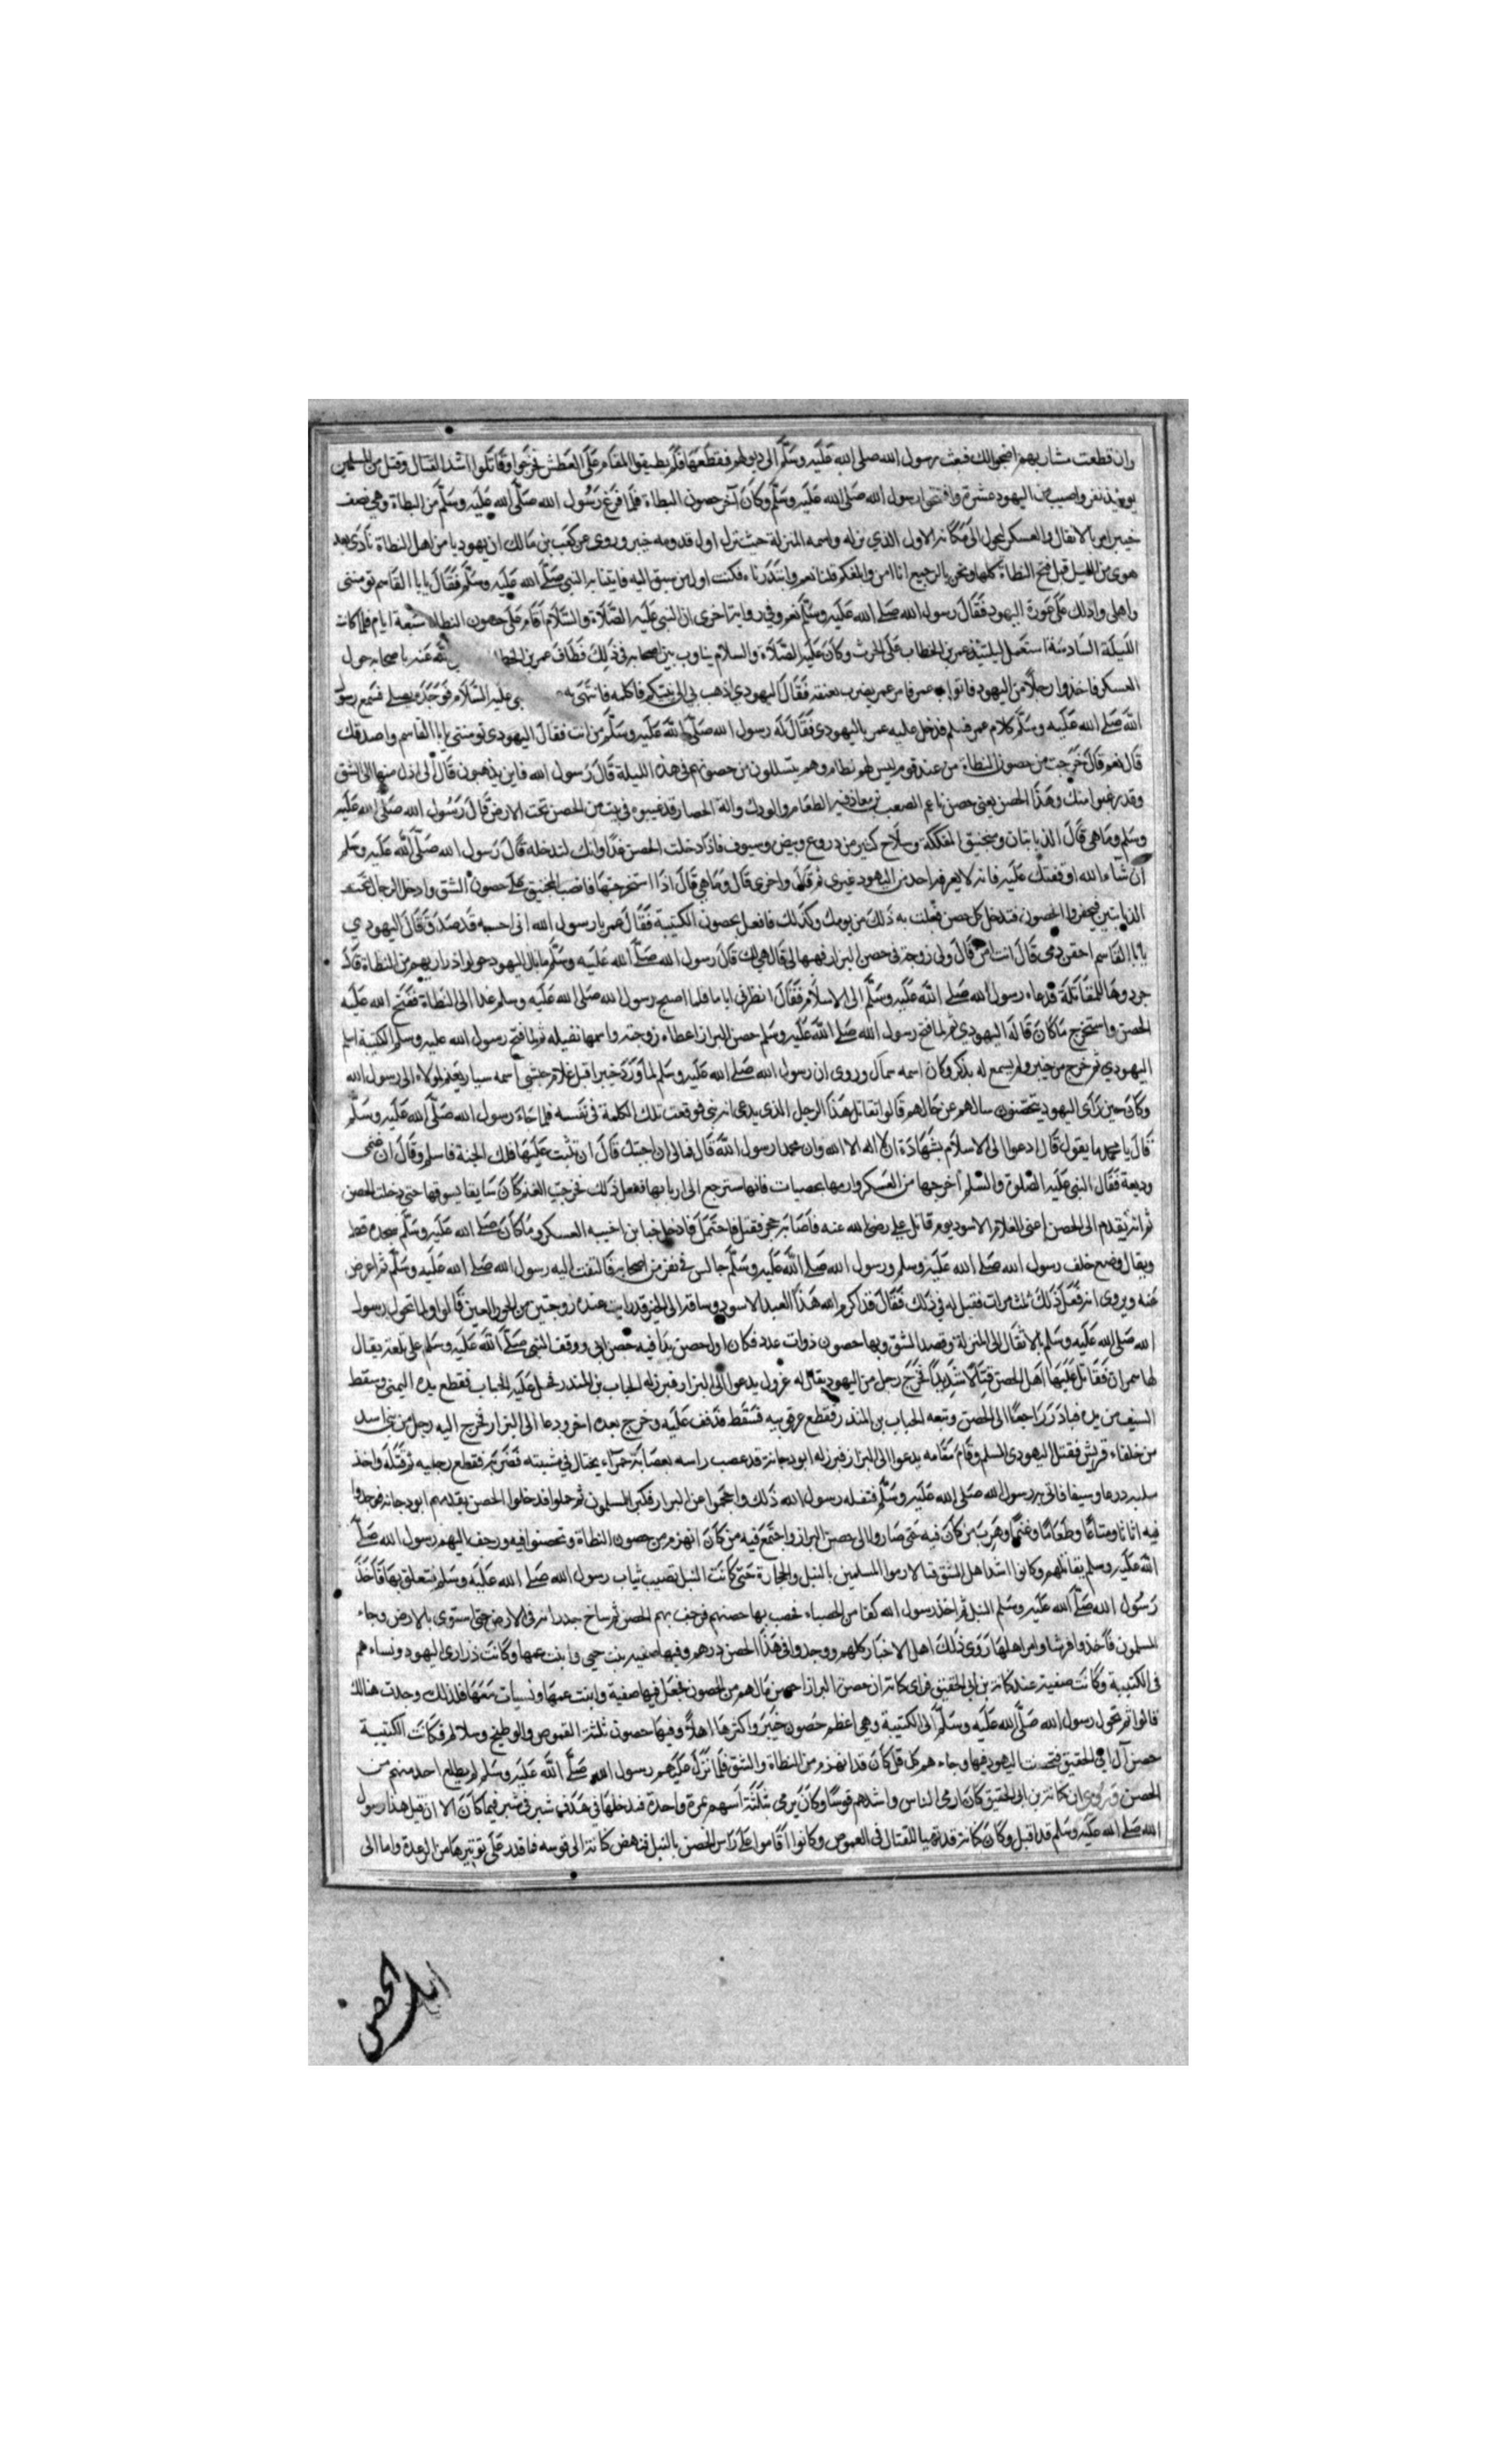 وان قطعت مشاربهم اضحوا لك فبعث رسول الله صلى الله عليه وسلم الى دبولهم فقطعها فلم يطيقوا المقام على العطش فخرجوا وقاتلوا اشد القتال وقتل من المسلمين
يومئذ نفر واصيب من اليهود عشرة وافتتحها رسول الله صلى الله عليه وسلم وكان آخر حصون النطاة فلما فرغ رسول الله صلى الله عليه وسلم من النطاة وهي نصف
خيبر امر بالانتقال والعسكر تحول الى مكانه الاول الذي نزله واسمه المنزلة حيث نزل اول قدومه خيبر وروى عن كعب بن مالك ان يهوديا من اهل النطاة نادى بعد
هوى من الليل قبل فتح النطاة كلها ونحن بالرجيع انا امن وابلغكم قلنا نعم وابتدرناه فكنت اول من سبق اليه فاتينا به النبي صلى الله عليه وسلم فقال يا ابا القاسم تومننى
واهلى وادلك على عورة اليهود فقال رسول الله صلى الله عليه وسلم نعم وفي رواية اخرى ان النبي عليه الصلاة والسلام اقام على حصون النطاة سبعة ايام فلما كانت
الليلة السادسة استعمل ليلتئذ عمر بن الخطاب على الحرث وكان عليه الصلاة والسلام يناوب بين اصحابه في ذلك فطاف عمر بن الخطا عنه باصحابه حول
العسكر فاخذوا رجلا من اليهود فاتوا به عمر فامر عمر بضرب عنقه فقال اليهودي اذهب بي الى نبيكم فاكلمه فانتهى به عليه السلام فوجده يصلى فسمع رسول
الله صلى الله عليه وسلم كلام عمر فسلم فدخل عليه عمر باليهودى فقال له رسول الله صلى الله عليه وسلم من انت فقال اليهودى تومننى يا ابا القاسم واصدقك
قال نعم قال خرجت من حصون النطاة من عند قوم ليس لهم نظام وهم يتسللون من حصونهم في هذه الليلة قال رسول الله فاين يذهبون قال الى اذل منها الى الشق
وقد رعبوا منك وهذا الحصن يعنى حصن ناعم الصعب بن معاذ فيه الطعام والودك وآلة الحصار قد غيبوه في بيت من الحصن تحت الارض قال رسول الله صلى الله عليه
وسلم وما هي قال الدبابتان ومنجنيق مفككة وسلاح كثير من دروع وبيض وسيوف فاذا دخلت الحصن غدا وانك لتدخله قال رسول الله صلى الله عليه وسلم
ان شاء الله اوقفتك عليه فانه لا يعرفه احد من اليهود غيرى ثم قال واخرى قال وما هي قال اذا استخرجتها فانصب المنجنيق على حصون الشق وادخل الرجال تحت
الدبابتين فيحفروا الحصون فتدخل كل حصن فعلت به ذلك من يومك وكذلك فافعل بحصون الكتيبة فقال عمر يا رسول الله انى احسبه قد صدق قال اليهودي
يا ابا القاسم احقن دمى قال انت امن قال ولى زوجة في حصن البزار فهبها لى قال هي لك قال رسول الله صلى الله عليه وسلم ما بال اليهود حولوا ذراريهم من النطاة قال
جردوها للمقاتلة فدعاه رسول الله صلى الله عليه وسلم الى الاسلام فقال انظرنى اياما فلما اصبح رسول الله صلى الله عليه وسلم غدا الى النطاة ففتح الله عليه
الحصن واستخرج ما كان قاله اليهودي ثم لما فتح رسول الله صلى الله عليه وسلم حصن البزار اعطاه زوجته واسمها نفيله ثم لما فتح رسول الله عليه وسلم الكتيبة اسلم
اليهودي ثم خرج من خيبر ولم يسمع له بذكر وكان اسمه سمال وروى ان رسول الله صلى الله عليه وسلم لما ورد خيبر اقبل غلام حبشى اسمه سيار يغنم لمولاه الى رسول الله
وكان حين رأى اليهود يتحصنون سالهم عن حالهم قالوا نقاتل هذا الرجل الذى يدعى انه نبي فوقعت تلك الكلمة في نفسه فلما جاء رسول الله صلى الله عليه وسلم
قال يا محمد ما يقول قال ادعوا الى الاسلام بشهادة ان لا اله الا الله وان محمدا رسول الله قال فما لى ان اجبتك قال ان تثبت عليها فلك الجنة فاسلم وقال ان غنمى
وديعة فقال النبي عليه الصلوة والسلم اخرجها من العسكر وارمها بحصيات فانها سترجع الى اربابها ففعل ذلك فخرجت الغنم كان سايقا يسوقها حتى دخلت الحصن
ثم انه يقدم الى الحصن اعنى الغلام الاسود يوم قاتل على رضى الله عنه فاصابه حجر فقتل فاحتمل فادخل خبا من اخبية العسكر وما كان صلى الله عليه وسلم سجدة قط
ويقال وضع خلف رسول الله صلى الله عليه وسلم ورسول الله صلى الله عليه وسلم جالس في نفر من اصحابه فالتفت اليه رسول الله صلى الله عليه وسلم ثم اعرض
عنه ويروى انه فعل ذلك ثلث مرات فقيل له في ذلك فقال قد اكرم الله هذا العبد الاسود وساقه الى الخير قد رايت عنده زوجتين من الحور العين قالوا ولما تحول رسول
الله صلى الله عليه وسلم بالانتقال الى المنزلة وقصد الشق وبها حصون ذوات عدد فكان اول حصن بدا فيه حصن ابى ووقف النبي صلى الله عليه وسلم على قلعة يقال
لها سمران فقاتل عليها اهل الحصن قتالا شديدا فخرج رجل من اليهود يقال له غزول يدعوا الى البزار فبرز له الحباب بن المنذر فحمل عليه الحباب فقطع يده اليمنى وسقط
السيف من يده فبادر راجعا الى الحصن وتبعه الحباب بن المنذر فقطع عرقوبيه فسقط فذفف عليه وخرج بعده اخر ودعا الى البزار فخرج اليه رجل من بنى اسد
من خلفاء قريش فقتل اليهودى المسلم وقام مقامه يدعوا الى البزاز فبرز له ابو دجانة قد عصب راسه بعصابة حمراء يختال في مشيته فضربه فقطع رجليه ثم قتله واخذ
سلبه درعا وسيفا فاتى به رسول الله صلى الله عليه وسلم فنفله رسول الله ذلك واحجموا عن البراز فكبر المسلمون ثم حملوا فدخلوا الحصن يقدمهم ابو دجانة فوجدوا
فيه اثاثا ومتاعا وطعاما وغنما وهرب من كان فيه حتى صاروا الى حصن البزار واجتمع فيه من كان انهزم من حصون النطاة وتحصنوا فيه وزحف اليهم رسول الله صلى
الله عليه وسلم يقاتلهم وكانوا اشد اهل الشق قتالا رموا المسلمين بالنبل والحجارة حتى كانت النبل تصيب ثياب رسول الله صلى الله عليه وسلم فتعلق بها فاخذ
رسول الله صلى الله عليه وسلم النبل ثم اخذ رسول الله كفا من الحصباء فحصب بها حصنهم فرجف بهم الحصن ثم ساخ جدرانه في الارض حتى استوى بالارض وجاء
المسلمون فاخذوا فرشا وامر اهلها روى ذلك اهل الاخبار كلهم ووجدوا في هذا الحصن درهم وفيها صفيه بنت حيي وابنت عمها وكانت ذرارى اليهود ونساءهم
في الكتيبة وكانت صفية عند كنانة بن ابى الحقيق فراى كنانة ان حصن البزاز احصن مالهم من الحصون فجعل فيها صفية وابنت عمها ونسيات معها فلذلك وجدت هنالك
قالوا ثم تحول رسول الله صلى الله عليه وسلم الى الكتيبة وهي اعظم حصون خيبر واكثرها اهلا وفيها حصون ثلثة القموص والوطيح وسلالم فكانت الكتيبة
حصن آل ابي الحقيق فتحصنت اليهود فيها وجاءهم كل فل كان قد انهزم من النطاة والشق فلما نزل عليهم رسول الله صلى الله عليه وسلم لم يطلع احد منهم من
الحصن وروى ان كنانة بن ابى الحقيق كان ارمى الناس واشدهم قوسا وكان يرمى بثلثة اسهم بمرة واحدة فتدخلها في هدف شبر في شبر فيما كان الا ان قيل هذا رسول
الله صلى الله عليه وسلم قد اقبل وكان كنانة قد تهيا للقتال في القموص وكانوا اقاموا على راس الحصن بالنبل فنهض كنانة الى قوسه فما قدر على توتيرها من الرعدة واما الى
اهل الحصن